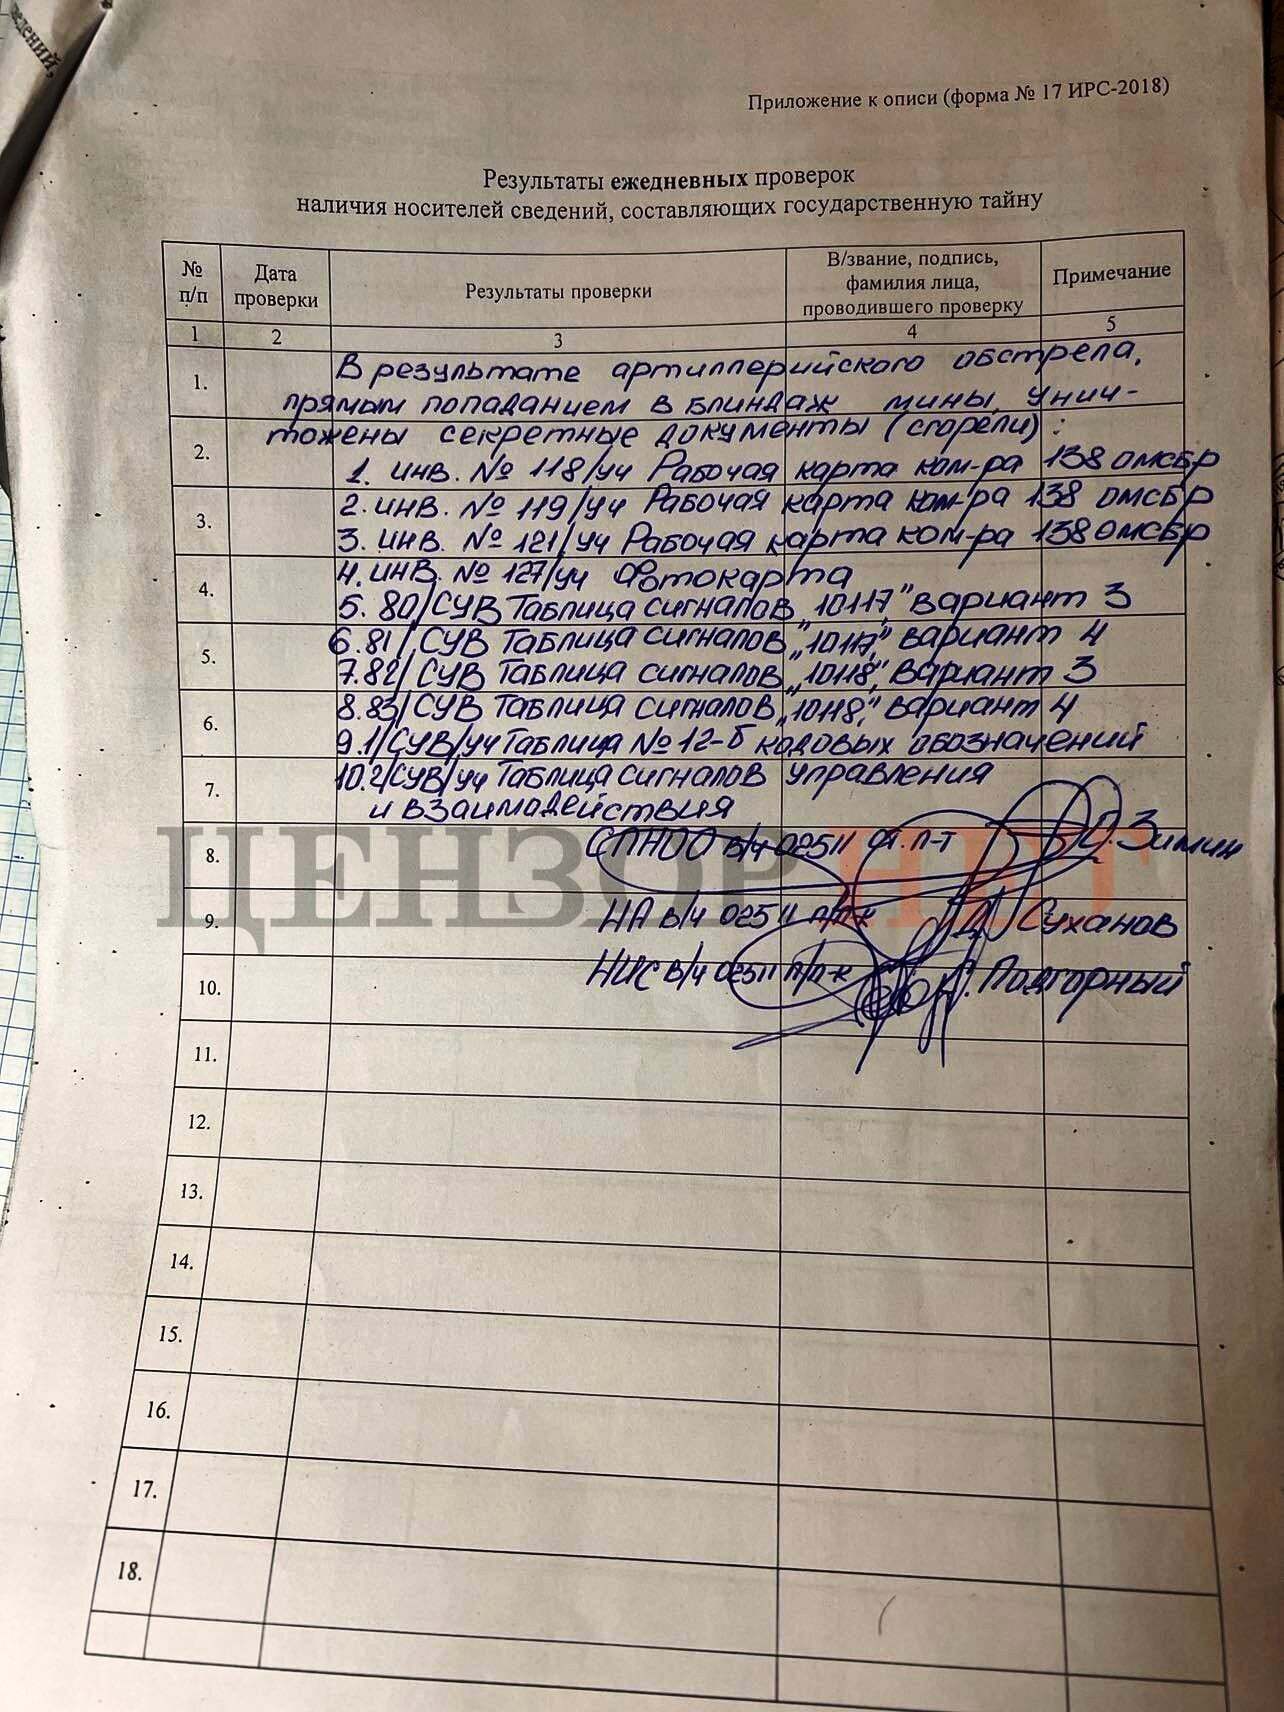 ведений,
Приложение к описи (форма № 17 ИРС-2018)
Результаты ежедневных проверок
наличия носителей сведений, составляющих государственную тайну
№ п/п
Дата проверки
Результаты проверки
В/звание, подпись, фамилия лица, проводившего проверку
Примечание
1 2 3 4 5
1.
В результате артиллерийского обстрела,
прямым попаданием в блиндаж мины, унич-
2.
тожены секретные документы (сгорели):
1. инв. № 118/уч Рабочая карта ком-ра 138 омсбр
3.
2. инв. № 119/уч Рабочая карта ком-ра 138 омсбр
3. инв. № 121/уч Рабочая карта ком-ра 138 омсбр
4.
4. инв. № 127/уч Фотокарта
5. 80/СУВ Таблица сигналов „10117," вариант 3
5.
6. 81/СУВ Таблица сигналов „10117," вариант 4
7. 82/СУВ Таблица сигналов „10118", вариант 3
6.
8. 83/СУВ Таблица сигналов „10118," вариант 4
9. 1/СУВ/уч Таблица № 12-б кодовых обозначений
7.
10. 2/СУВ/уч Таблица сигналов управления
и взаимодействия
ЦЕНЗОР.НЕТ
8.
СПНОО в/ч 02511 ст. л-т Зимин
9.
НА в/ч 02511 п/п-к Д. Суханов
10.
НИС в/ч 02511 п/п-к Подгорный
11.
12.
13.
14.
15.
16.
17.
18.